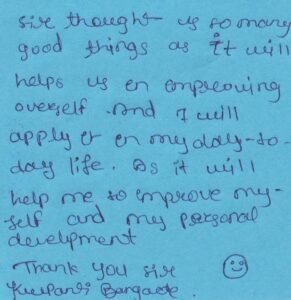 sir thought us so many
good things as it will
helps us en emproving
ourself. And I will
apply it en my day-to-
day life. As it will
help me to emprove my-
self and my personal
develpment
Thank you sir
Bangade.